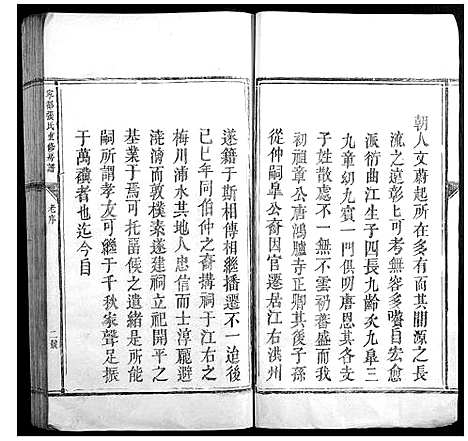 朝人文蔚起所在多有而其開源之長
流之遠彰上可考無容多嘴自宏愈
派衍曲江生子四長九齡次九臯三
九童幼九賓一門俱明唐恩寵其
子姓散處不一無不雲礽蕃盛而我
初祖章公唐鴻臚寺正卿其後子孫
從仲嗣臯公裔因官遷居江右洪州
遂籍于斯相傳相繼播遷不一迨後
己巳年同伯仲之裔搆祠于江右之
梅川浦水其地人忠信而士淳龎避
澆淆而敦樸溱遂建祠立祀開平之
基業于焉可托畱侯之遺緒於是可
嗣所謂孝友可繼于千秋家聲足振
于萬禩者也迄今目
寧都張氏重修房譜
老序
一號